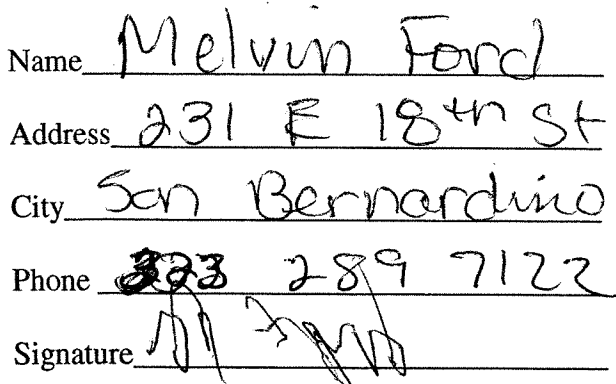 Name Melvin Ford
Address 231 E 18th St
City San Bernardino
Phone 323 289 7122
Signature